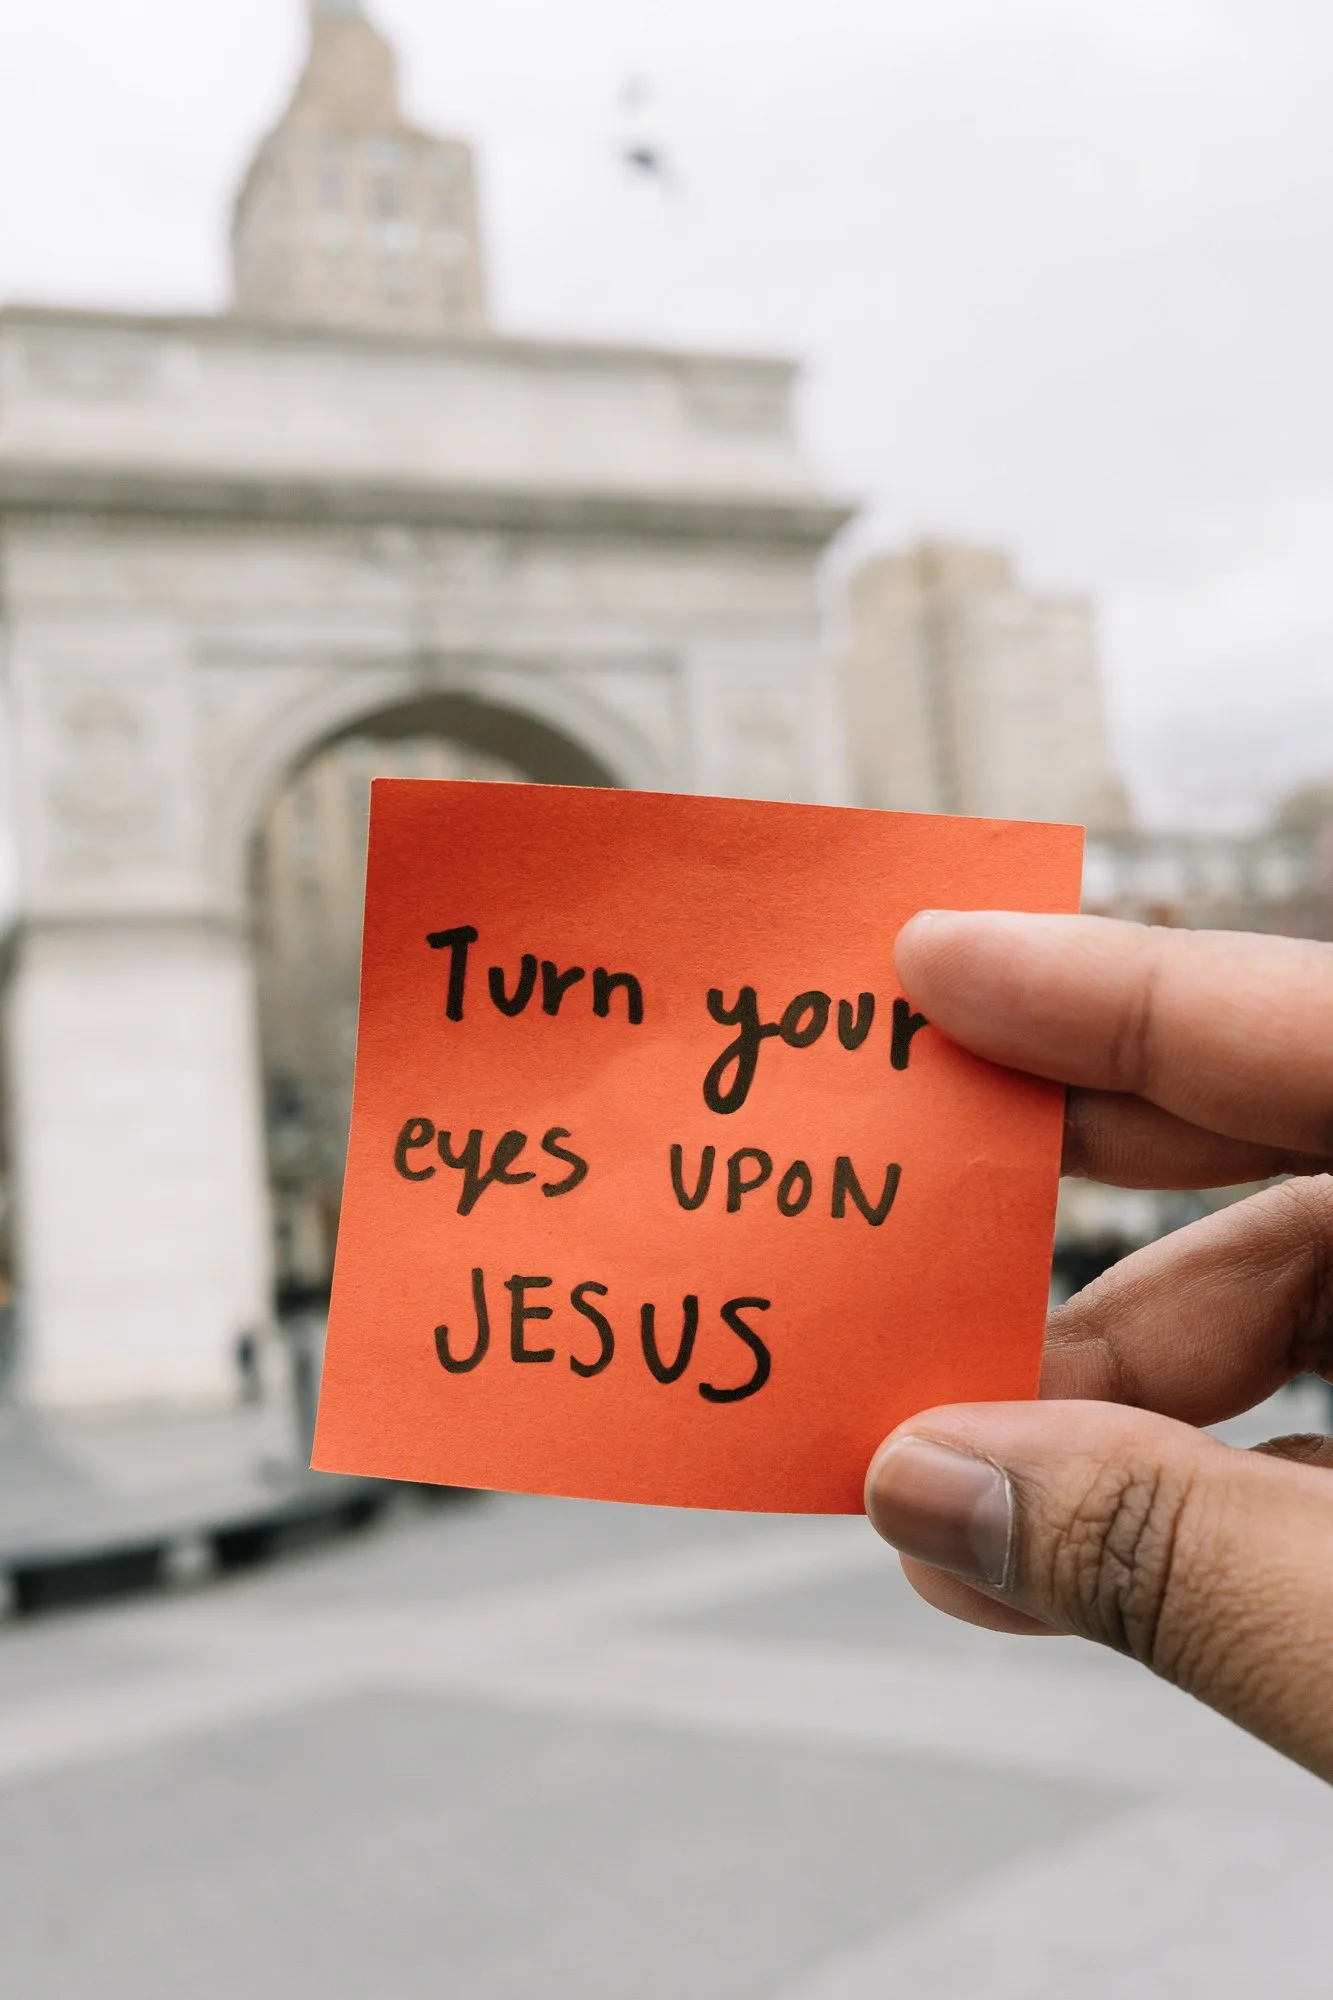 Turn your
eyes UPON
JESUS